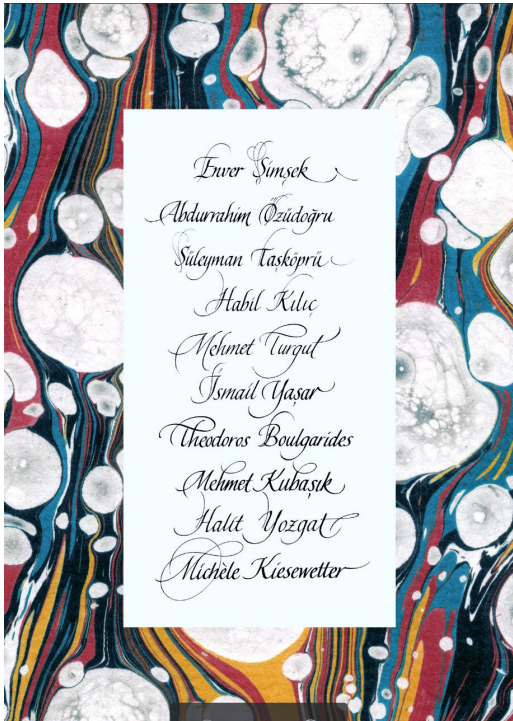 Enver Şimşek
Abdurrahim Özüdoğru
Süleyman Taşköprü
Habil Kılıç
Mehmet Turgut
İsmail Yaşar
Theodoros Boulgarides
Mehmet Kubaşık
Halit Yozgat
Michèle Kiesewetter